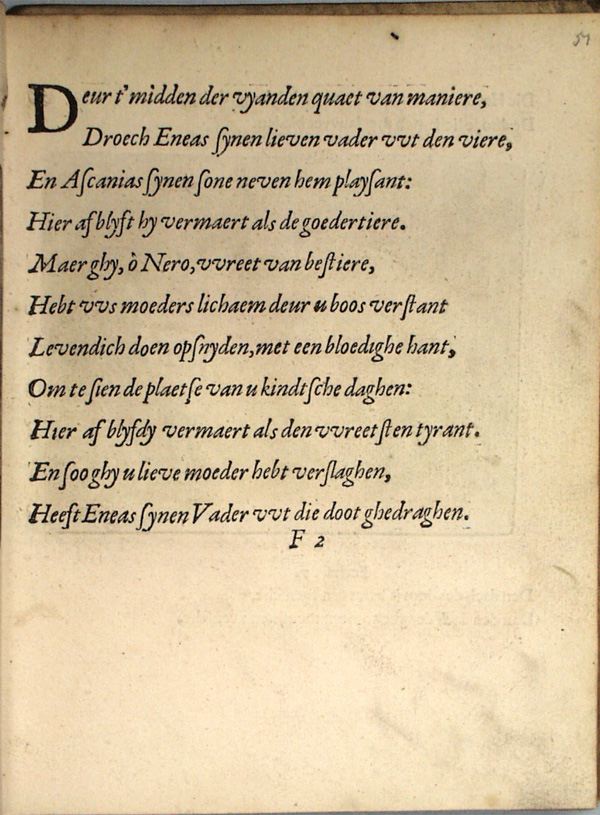 51
Deur t'midden der vyanden quaet van maniere,
Droech Eneas ſynen lieven vader vvt den viere,
En Aſcanias ſynen ſone neven hem playſant:
Hier af blyft hy vermaert als de goedertiere.
Maer ghy, ò Nero, vvreet van beſtiere,
Hebt vvs moeders lichaem deur u boos verſtant
Levendich doen opſnyden, met een bloedighe hant,
Om te ſien de plaetſe van u kindtſche daghen:
Hier af blyfdy vermaert als den vvreetſten tyrant.
En ſoo ghy u lieve moeder hebt verſlaghen,
Heeft Eneas ſynen Vader vvt die doot ghedraghen.
F 2